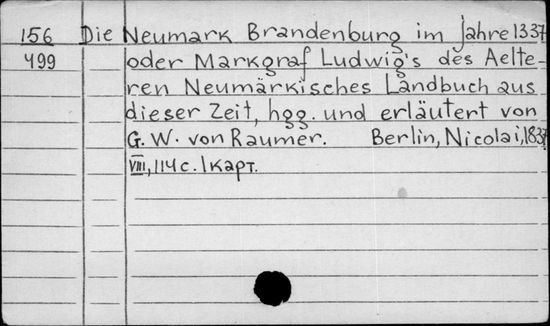 156 Die Neumark Brandenburg im Jahre 1337
499 oder Markgraf Ludwig's des Aelte-
ren Neumärkisches Landbuch aus
dieser Zeit, hgg. und erläutert von
G. W. von Raumer. Berlin, Nicolai, 1837
VIII, 114 с. 1 карт.